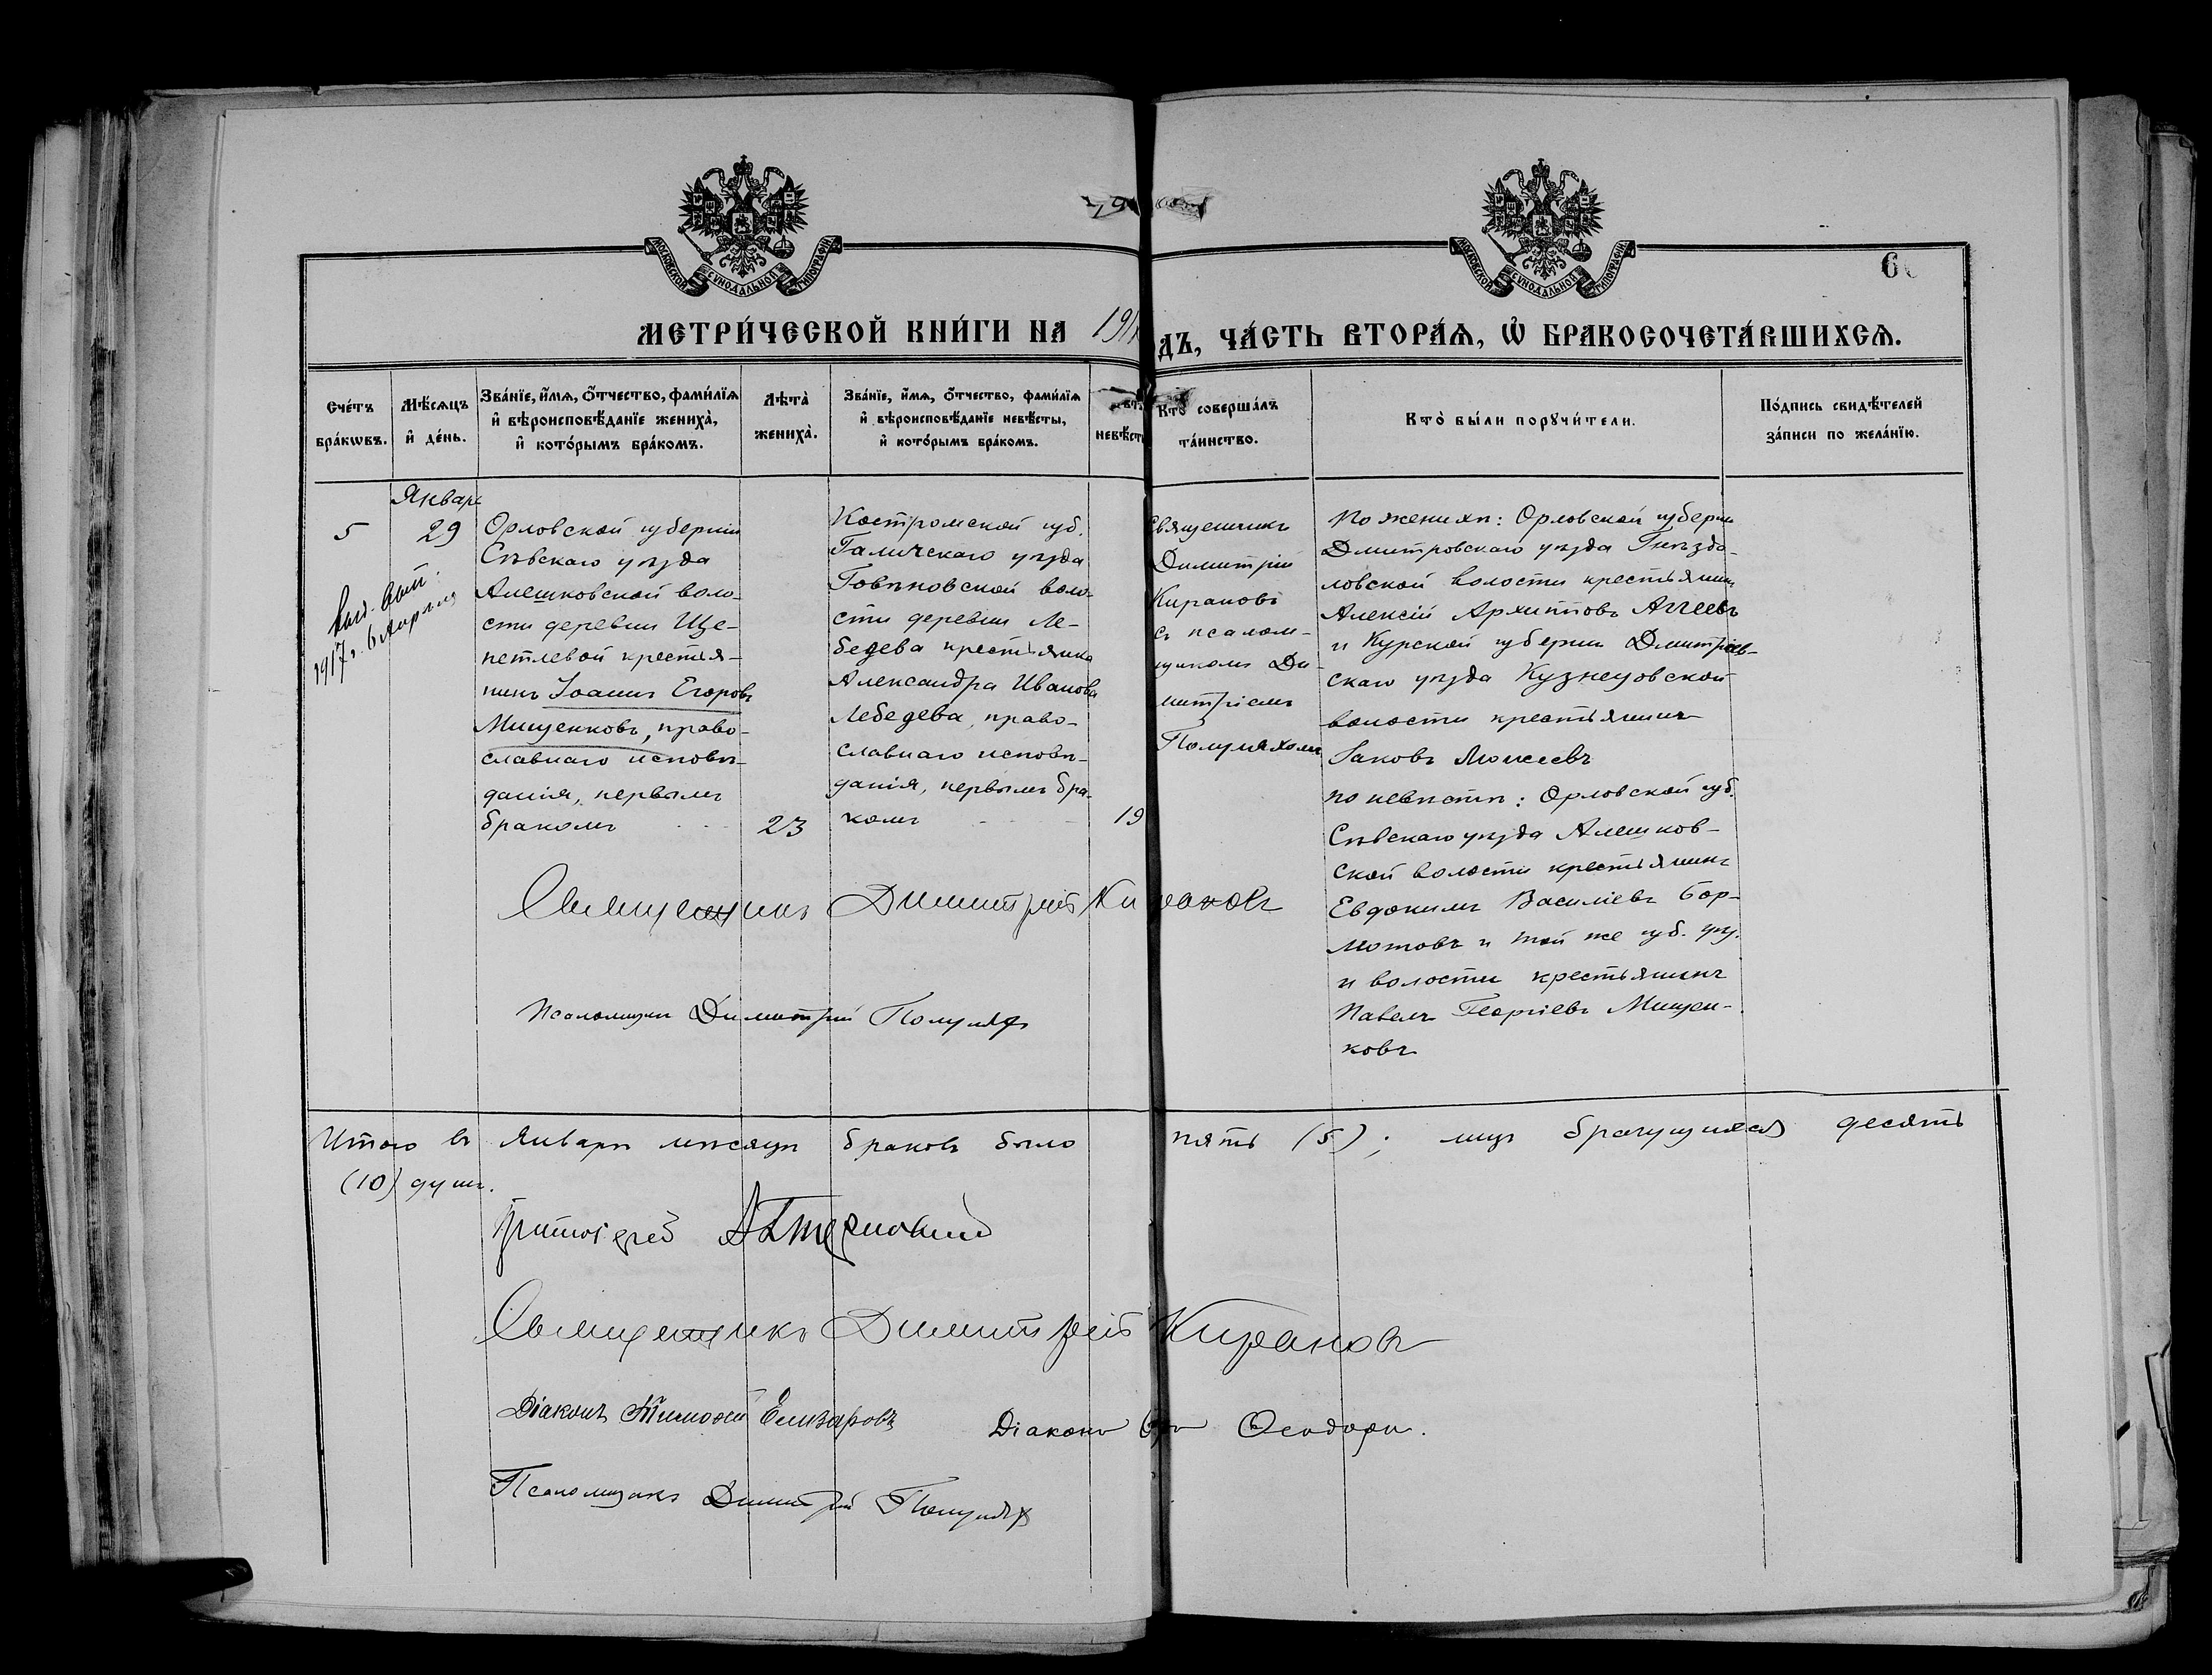 МОСКОВСКОЙ СѴНОДАЛЬНОЙ ТИПОГРАФІИ
МОСКОВСКОЙ СѴНОДАЛЬНОЙ ТИПОГРАФІИ
6
МЕТРИ́ЧЕСКОЙ КНИ́ГИ НА 191 ДЪ, ЧА́СТЬ ВТОРА́Ѧ, Ѽ БРАКОСОЧЕТА́ВШИХСѦ.
Сче́тъ бра́кѡвъ.
Мѣ́сѧцъ и҆ де́нь.
Зва́нїе, и҆́мѧ, ѻ҆́тчество, фами́лїѧ и҆ вѣроисповѣ́данїе жениха̀, и҆ кото́рымъ бра́комъ.
Лѣта̀ жениха̀.
Зва́нїе, и҆́мѧ, ѻ҆́тчество, фами́лїѧ и҆ вѣроисповѣ́данїе невѣ́сты, и҆ кото́рымъ бра́комъ.
невѣ́ст
Кто̀ соверша́лъ та́инство.
Кто̀ бы́ли порꙋчи́тели.
По́дпись свидѣ́телей за́писи по жела́нїю.
Январь
5
29
1917 г. 6 Апрѣля
Орловской губерніи
Сѣвскаго уѣзда
Алешковской воло-
сти деревни Ще-
петлевой крестья-
нинъ Іоаннъ Егоровъ
Мищенковъ, право-
славнаго исповѣ-
данія, первымъ
бракомъ
23
Костромской губ.
Галичскаго уѣзда
Говѣновской воло-
сти деревни Ле-
бедева крестьянка
Александра Иванова
Лебедева, право-
славнаго исповѣ-
данія, первымъ бра-
комъ
19
Священникъ
Димитрій
Кирановъ
съ псалом-
щикомъ Ди-
митріемъ
Полуляхомъ
По женихѣ: Орловской губерніи
Дмитровскаго уѣзда Гнѣздо-
ловской волости крестьянинъ
Алексій Архиповъ Агѣевъ
и Курской губерніи Дмитріев-
скаго уѣзда Кузнецовской
волости крестьянинъ
Іаковъ Моисеевъ
по невѣстѣ: Орловской губ.
Сѣвскаго уѣзда Алешков-
ской волости крестьянинъ
Евдокимъ Василіевъ Бор-
мотовъ и той же губ. уѣз.
и волости крестьянинъ
Павелъ Георгіевъ Мищен-
ковъ
Священникъ Димитрій Кирановъ
Псаломщикъ Димитрій Полулях
Итого въ Январѣ мѣсяцѣ браковъ было пять (5); лицъ брачущихся десять
(10) душъ.
Протоіерей
Священникъ Димитрій Кирановъ
Діаконъ Тимофей Елизаровъ
Діаконъ
Псаломщикъ Димитрій Полулях